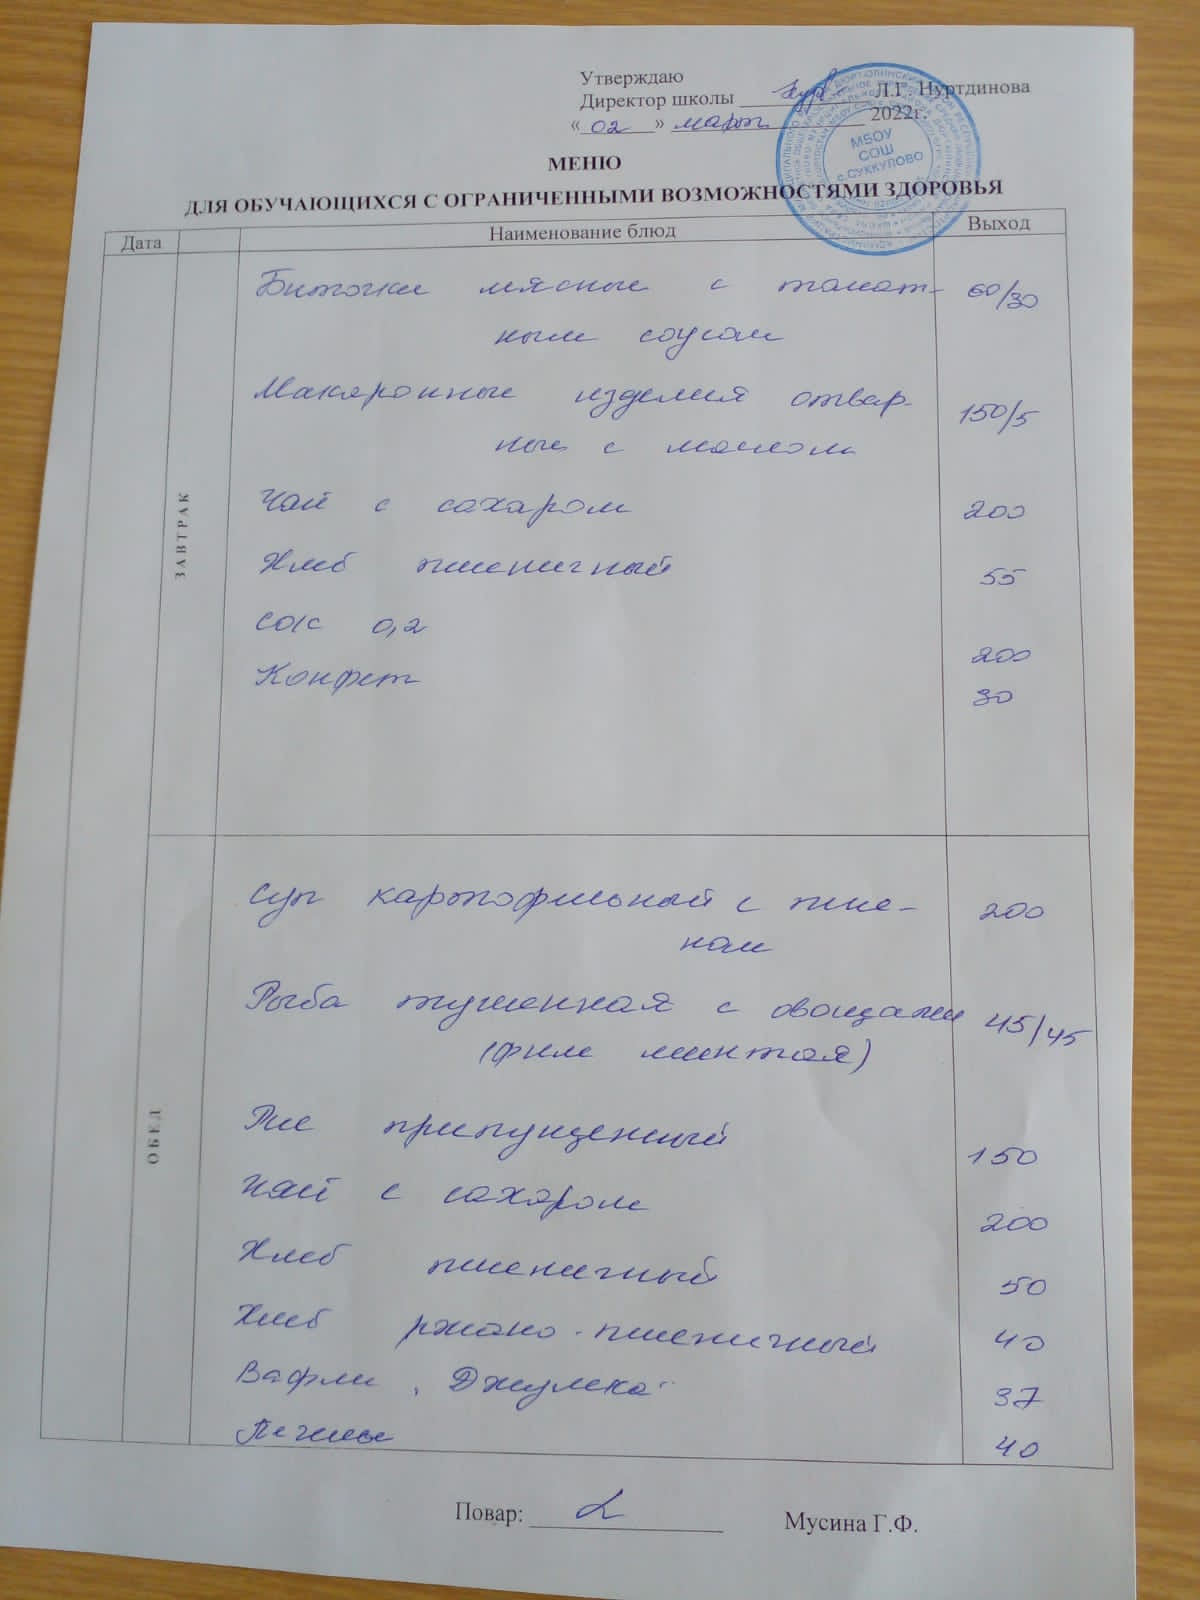 Утверждаю
Директор школы Л.Г. Нуртдинова
«02» март 2022г.
МЕНЮ
ДЛЯ ОБУЧАЮЩИХСЯ С ОГРАНИЧЕННЫМИ ВОЗМОЖНОСТЯМИ ЗДОРОВЬЯ
МБОУ
СОШ
с.СУККУЛОВО
Дата Наименование блюд Выход
ЗАВТРАК
Биточки мясные с томат- 60/30
ным соусом
Макаронные изделия отвар- 150/5
ные с маслом
Чай с сахаром 200
Хлеб пшеничный 55
Сок 0,2 200
Конфет 30
ОБЕД
Суп картофельный с пше- 200
ном
Рыба тушенная с овощами 45/45
(филе минтая)
Рис припущенный 150
Чай с сахаром 200
Хлеб пшеничный 50
Хлеб ржано-пшеничный 40
Вафли 37
Печенье 40
Повар: Мусина Г.Ф.